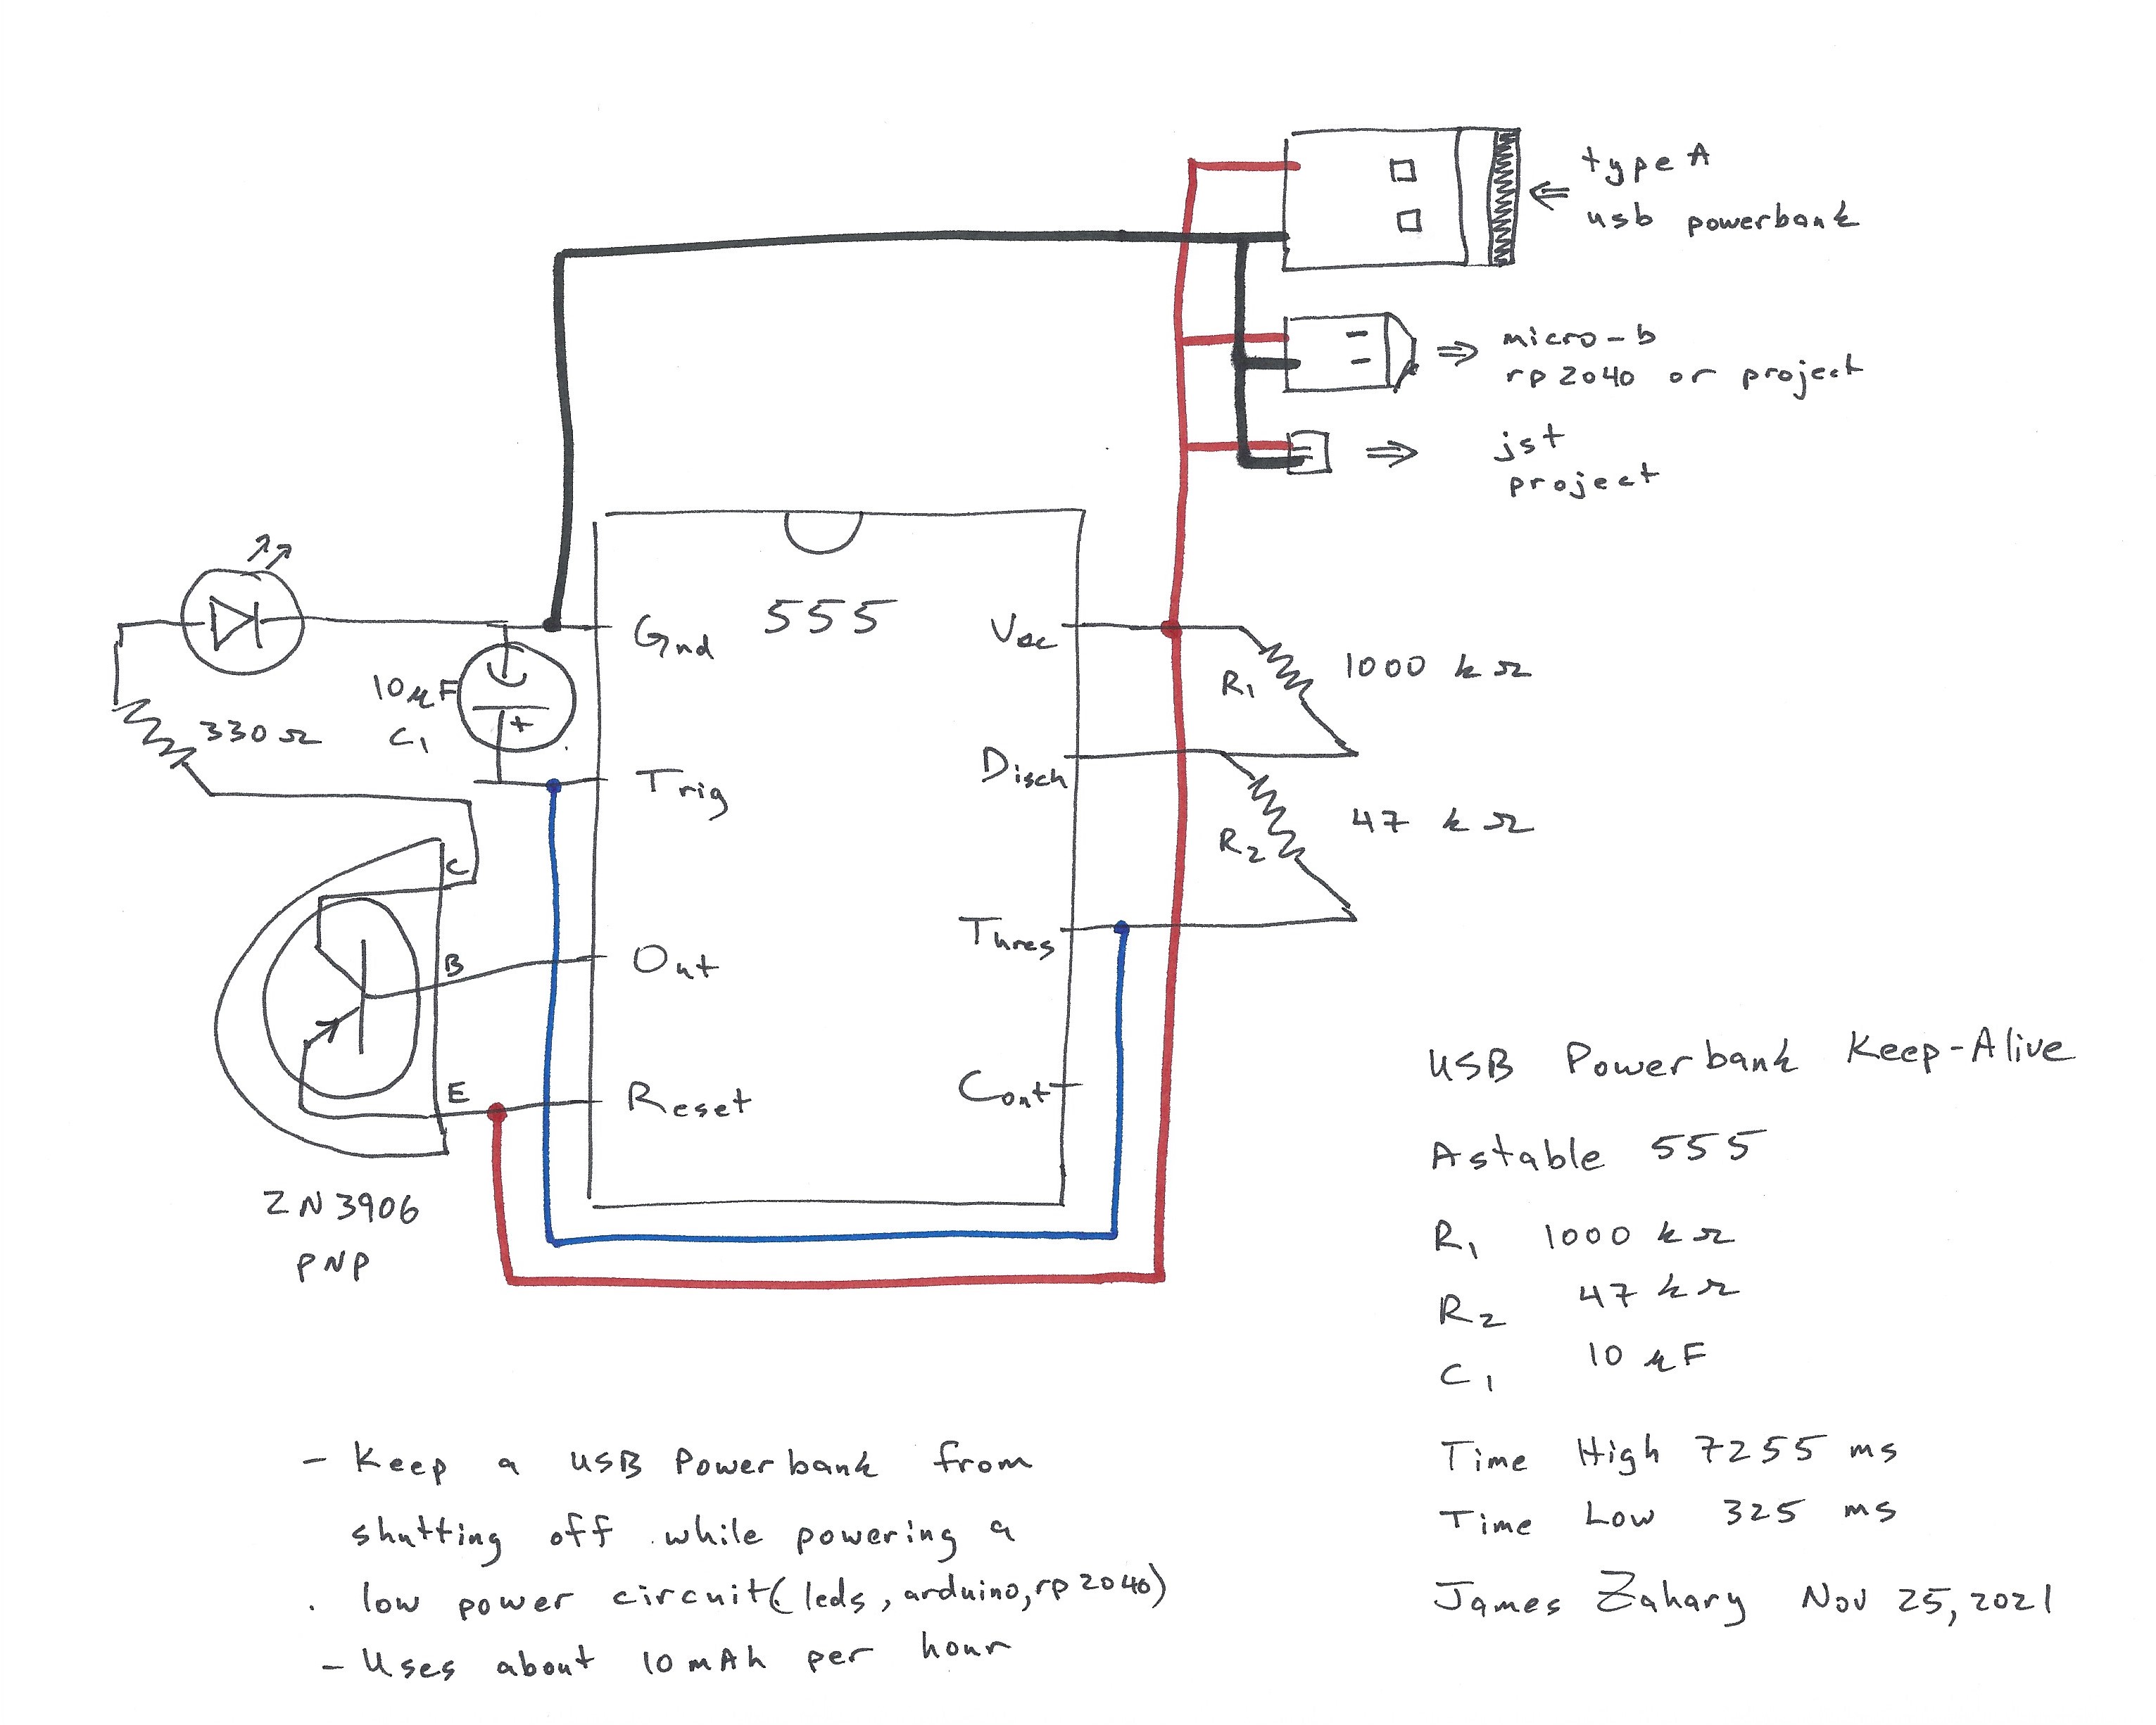 type A
usb powerbank
micro-b
rp2040 or project
jst
project
555
Gnd
Vcc
10μF
C1
+
330Ω
R1
1000 kΩ
Trig
Disch
R2
47 kΩ
C
B
E
Out
Thres
Reset
Cont
2N3906
PNP
USB Powerbank Keep-Alive
Astable 555
R1 1000 kΩ
R2 47 kΩ
C1 10 μF
Time High 7255 ms
Time Low 325 ms
James Zahary Nov 25, 2021
- Keep a USB Powerbank from
shutting off while powering a
low power circuit (leds, arduino, rp2040)
- Uses about 10 mAh per hour